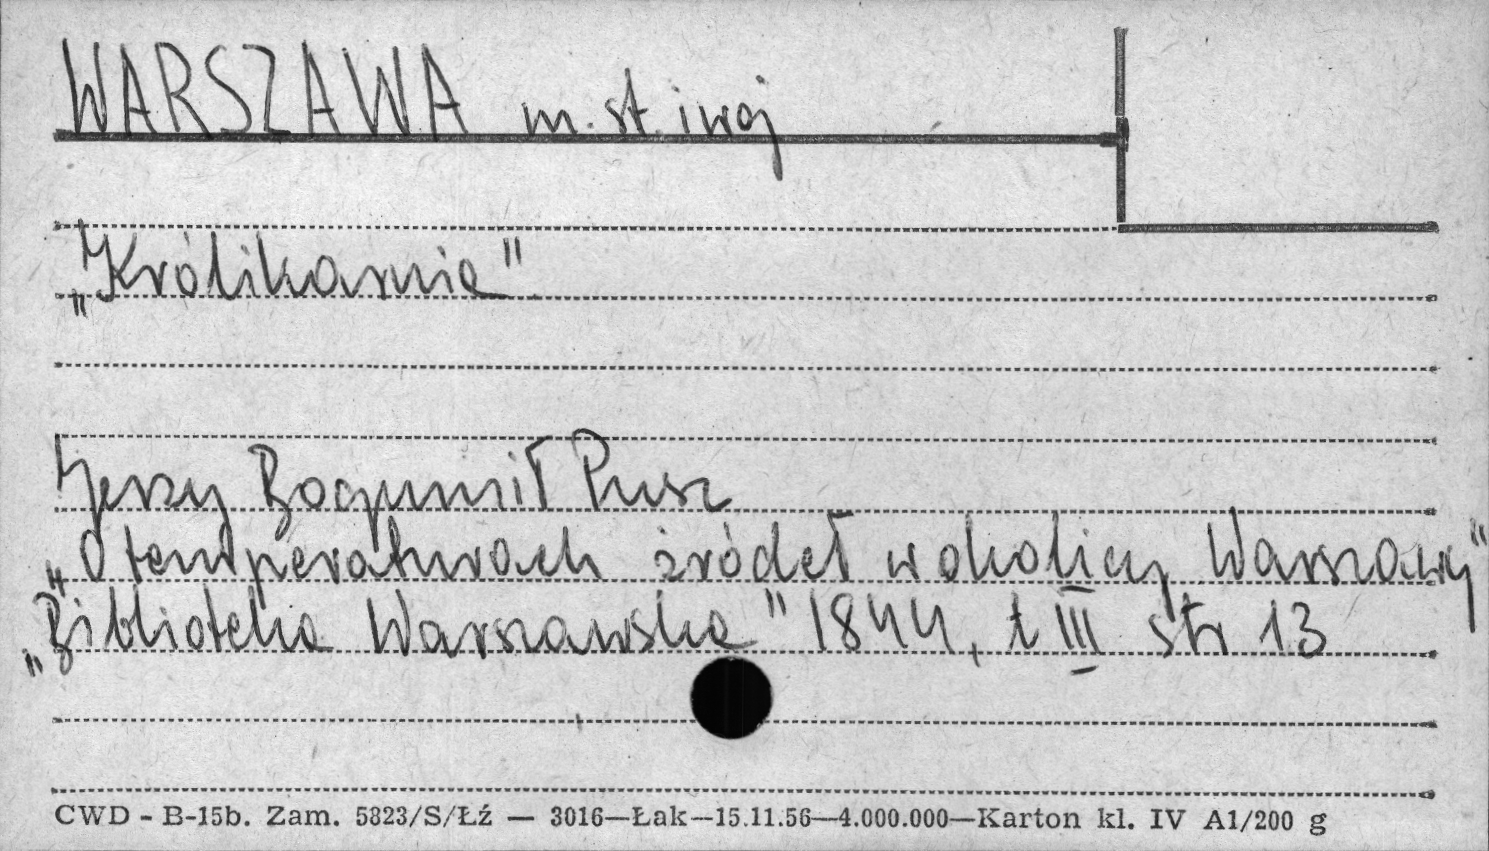 WARSZAWA m. st. i woj
„Królikarnia"
Jerzy Bogumił Pusz
„O temperaturach źródeł w okolicy Warszawy"
„Biblioteka Warszawska" 1844, t III str 13
CWD - B-15b. Zam. 5823/S/Łź — 3016—Łak—15.11.56—4.000.000—Karton kl. IV A1/200 g